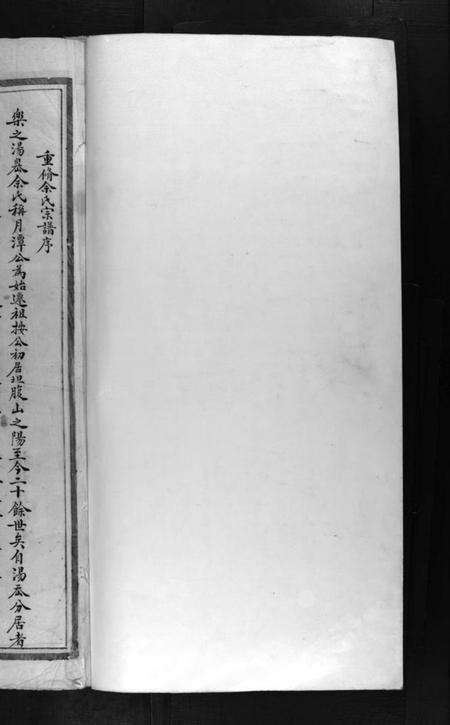 重脩余氏宗譜序
樂之湯㟧余氏稱月潭公為始遷祖按公初居坦腹山之陽至今二十餘世矣自湯㟧分居者